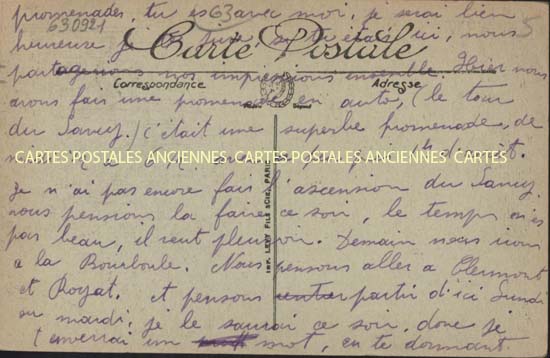 promenades, tu es 63 avec moi, je serai bien
630921
heureuse je si tu étais ici, nous 5
Carte Postale
partagerions nos impressions ensemble. Hier nous
Correspondance
Adresse
avons fait une promenade en auto, (le tour
du Sancy.) c'était une superbe promenade, de
CARTES POSTALES ANCIENNES CARTES POSTALES ANCIENNES CARTES
Je n'ai pas encore fait l'ascension du Sancy,
nous pensions la faire ce soir, le temps n'est
pas beau, il veut pleuvoir. Demain nous irons
a la Bourboule. Nous pensons aller a Clermont
et Royat. et pensons partir d'ici Lundi
ou mardi, je le saurai ce soir, donc je
t'enverrai un mot, en te donnant
IMP. LEVY FILS & CIE, PARIS